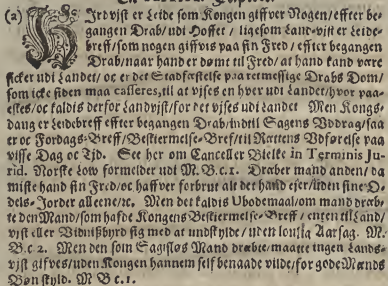 (2) Hirdvist er Leide som Kongen giffver Nogen/ effter be-
gangen Drab/ udi Hoffet / ligesom Land-vist er Leide-
breff/ som nogen giffvis paa sin Fred / effter begangen
Drab/ naar hand er dømt til Fred/ at hand kand være
sicker udi Landet/ oc er det Stadfæstelse paa retmessige Drabs Dom/
som icke siden maa casseres, til at vijses en hver udi Landet/ hvor paa-
eskes/ oc kaldis derfor Landvist/ for det vijses udi Landet Men Kongs-
daug er Leidebreff effter begangen Drab/ indtil Sagens Uddrag/ saa
er oc Fordags-Breff/ Bestiermelse-Bref/ til Rættens Udførelse paa
visse Dag oc Tid. See her om Cancelier Bielke in Terminis Ju-
rid. Norske Low formelder udi M. B. c. 1. Dræber mand anden/ da
miste hand sin Fred/ oc haffver forbrut alt det hand ejer/ uden sine O-
dels-Jorder alleene/ ⁊c. Men det kaldis Ubodemaal/ om mand dræb-
te den Mand/ som hafde Kongens Bestiermelse-Breff / enten til Land/
vist eller Vidnisbyrd sig med at undskylde / uden lovlig Aarsag. M.
B. c. 2. Men den som Sagisløs Mand dræbte/ maatte ingen Lands-
vist gifves/ uden Kongen hannem self benaade vilde/ for gode Mænds
Bøn skyld. M B c. 1.